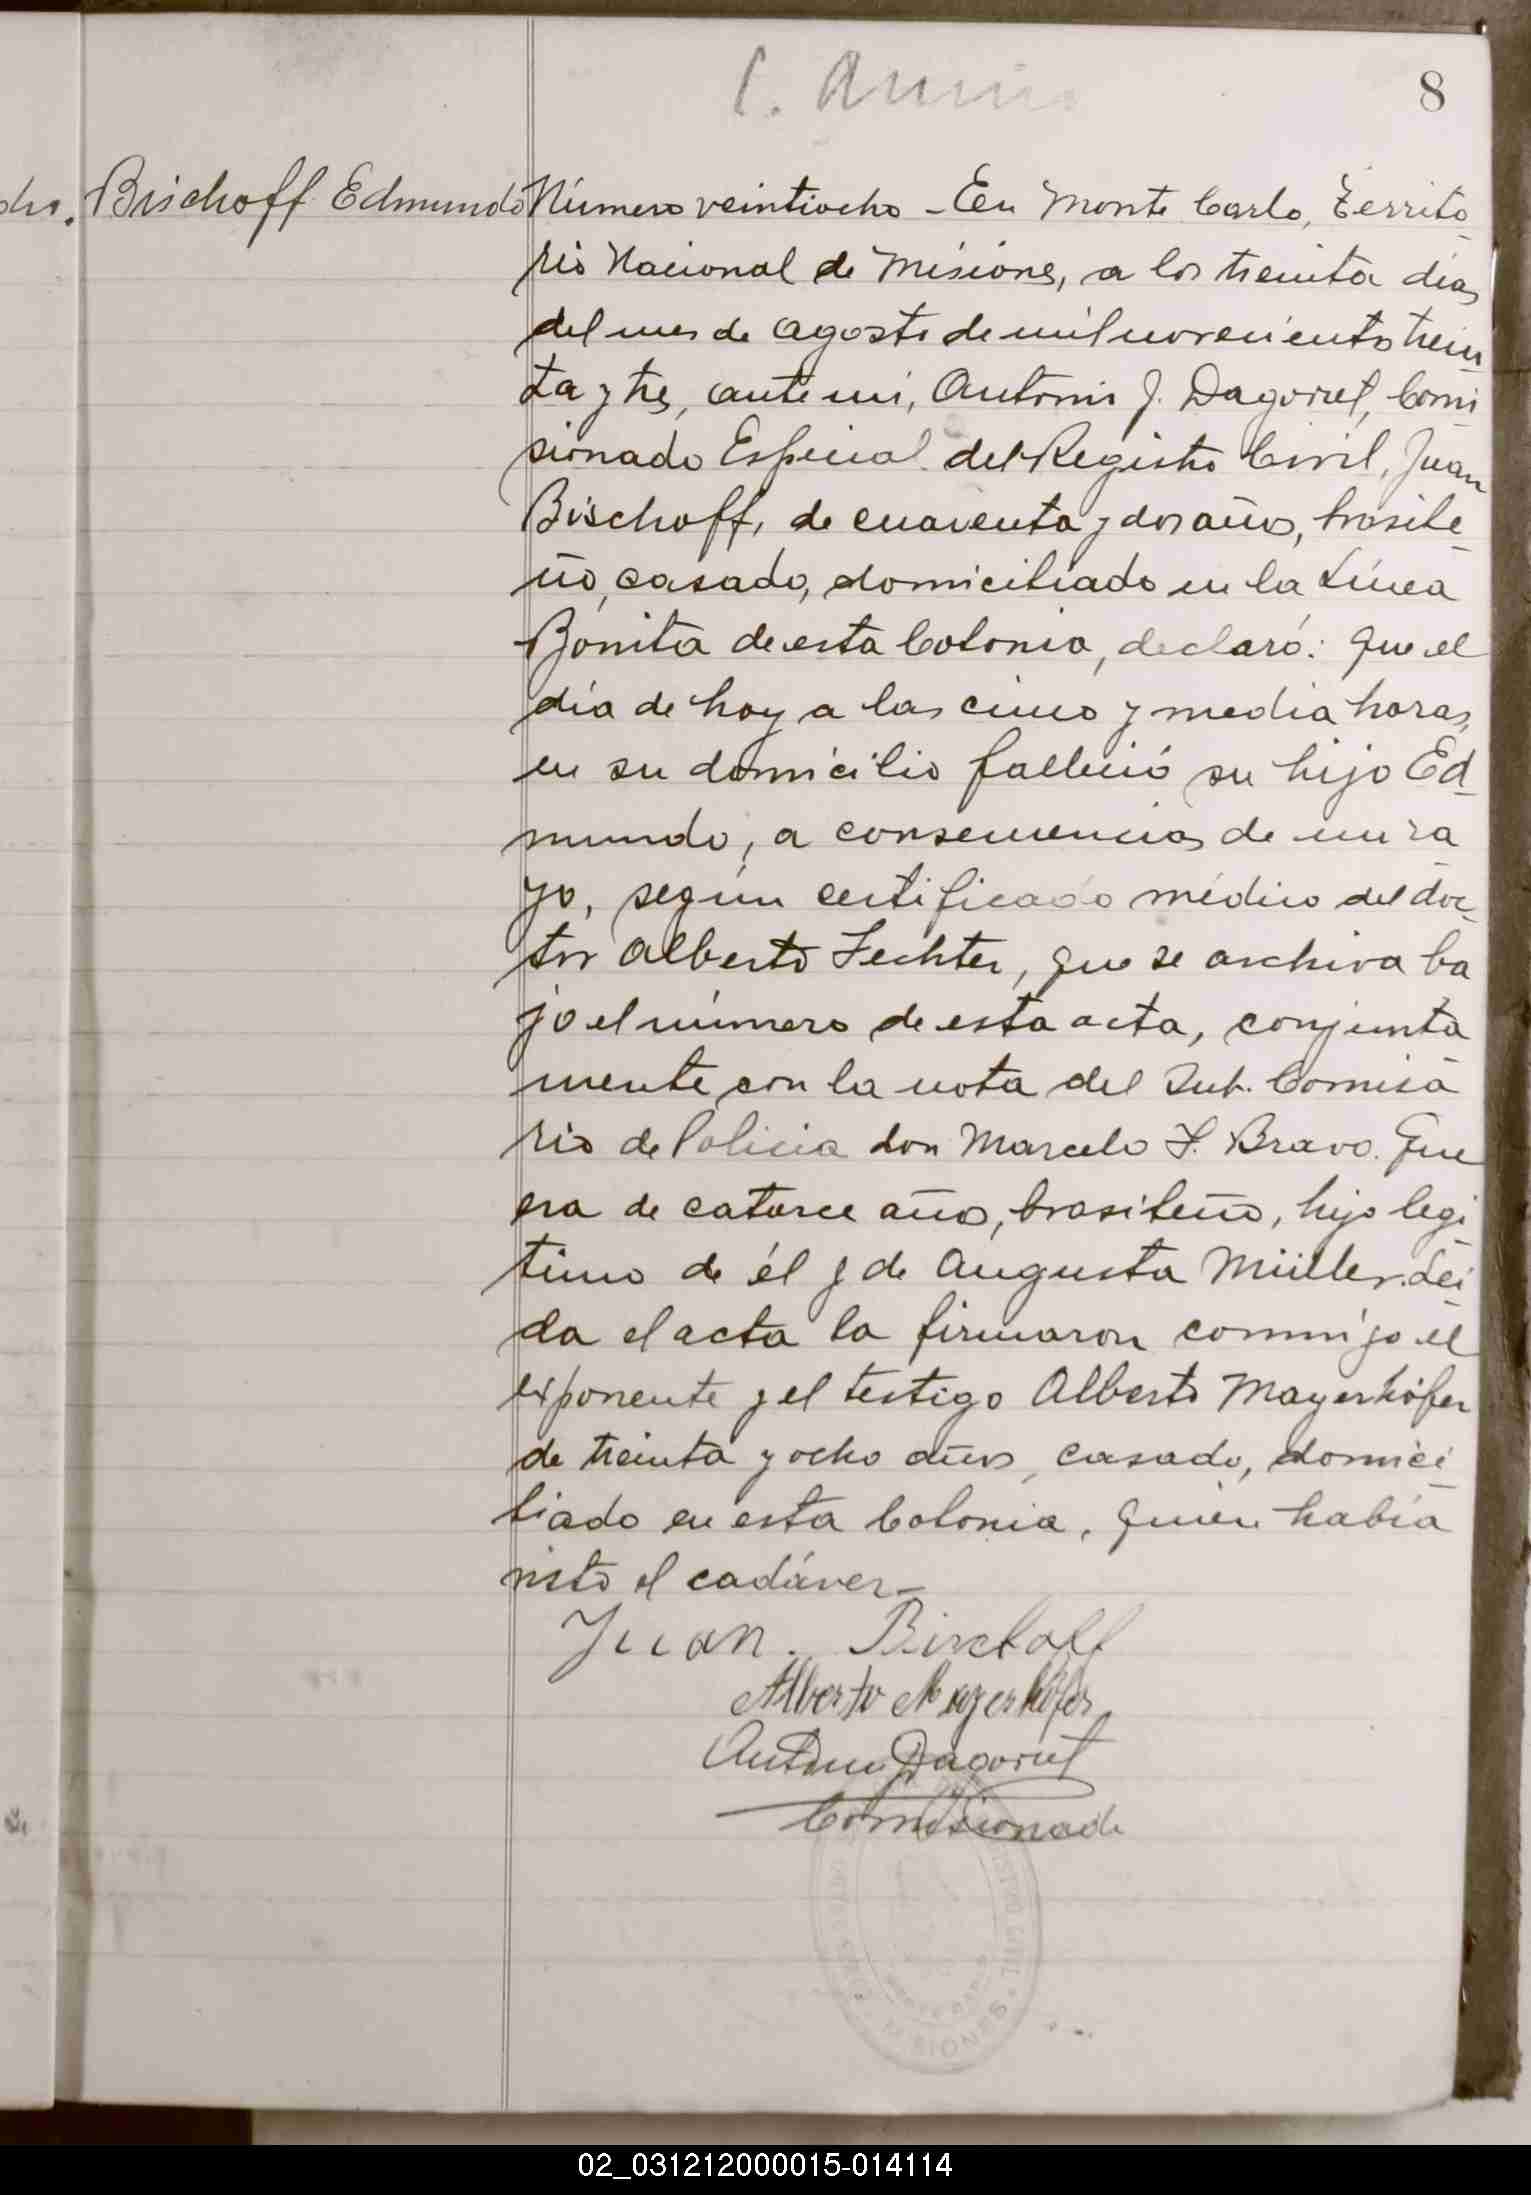 8
Bischoff Edmundo
Número veintiocho - En Monte Carlo, Territo
rio Nacional de Misiones, a los treinta dias
del mes de agosto de mil novecientos trein
ta y tres, ante mi, Antonio J. Dagorret, Comi
sionado Especial del Registro Civil, Juan
Bischoff, de cuarenta y dos años, brasile
ño, casado, domiciliado en la Línea
Bonita de esta Colonia, declaró: Que el
día de hoy a las cinco y media horas,
en su domicilio falleció su hijo Ed-
mundo, a consecuencias de un ra
yo, según certificado médico del doc-
tor Alberto Fechter, que se archiva ba
jo el número de esta acta, conjunta
mente con la nota del Sub. Comisa
rio de Policia don Marcelo F. Bravo. Que
era de catorce años, brasileño, hijo legi
timo de él y de Augusta Müller. Lei
da el acta la firmaron conmigo el
exponente y el testigo Alberto Mayerhöfer
de treinta y ocho años, casado, domici
liado en esta Colonia, quien había
visto el cadáver-
Juan. Bischoff
Alberto Mayerhöfer
Antonio J Dagorret
Comisionado
REGISTRO CIVIL
MONTE CARLO
MISIONES
02_031212000015-014114